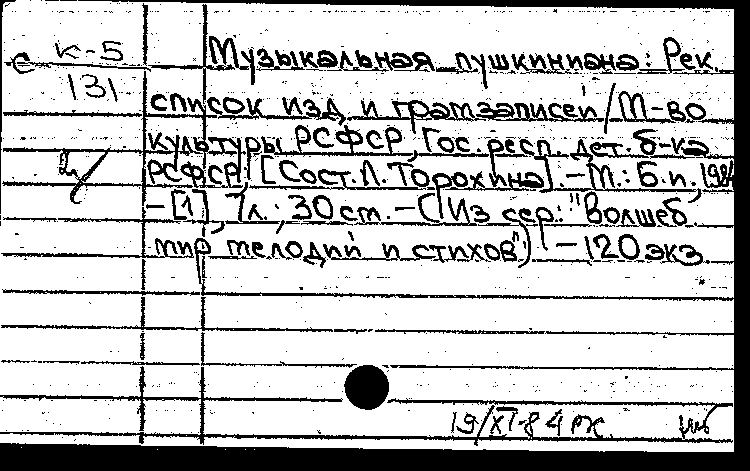 с к-5
131
Музыкальная пушкиниана: Рек.
список изд. и грамзаписей/М-во
культуры РСФСР, Гос. респ. дет. б-ка
РСФСР; [Сост. Л. Торохина]. – М.: Б.и., 1984
– [1], 7л.; 30 см. – (Из сер.: "Волшеб.
мир мелодий и стихов") – 120 экз.
19/XI-84